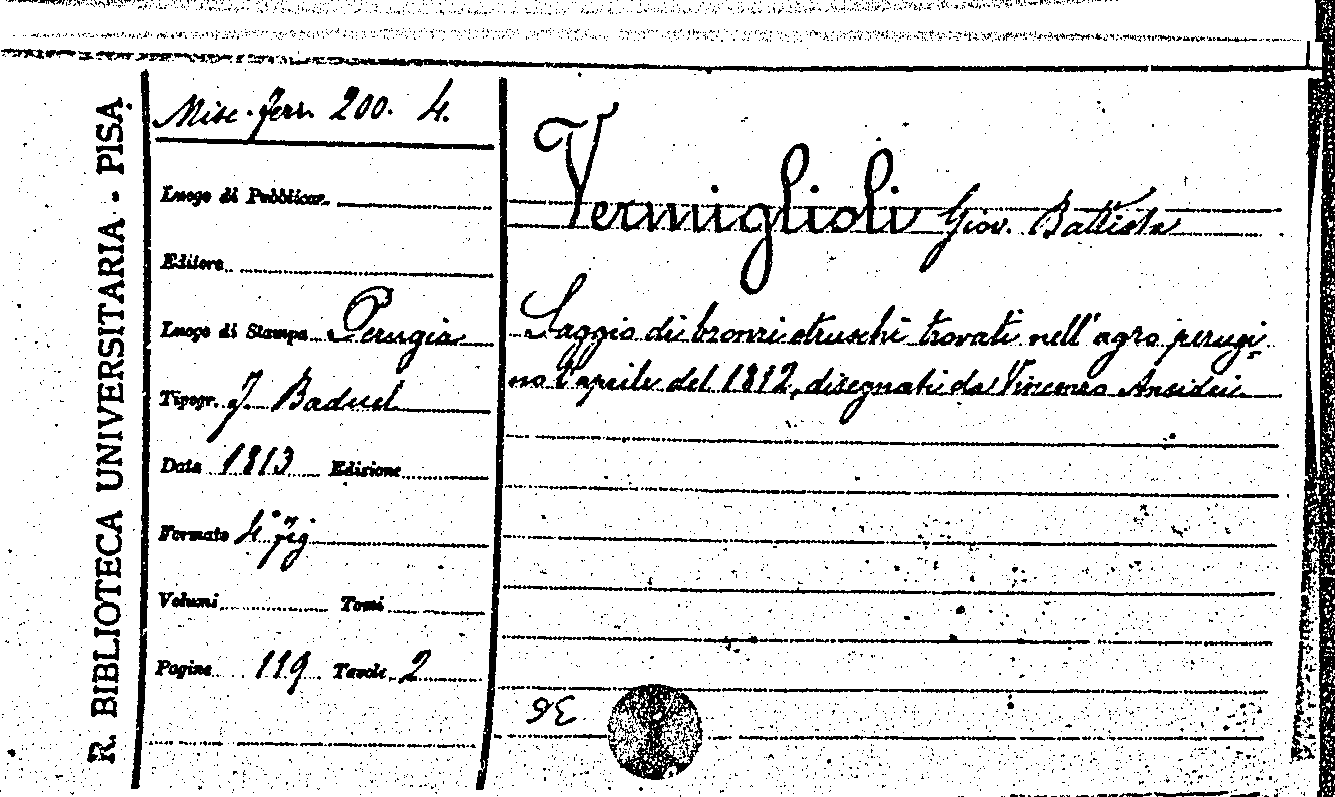 R. BIBLIOTECA UNIVERSITARIA - PISA
Misc. Ferr. 200. 4.
Luogo di Pubblicaz.
Editore
Luogo di Stampa Perugia
Tipogr. J. Baduel
Data 1813 Edizione
Formato 4° fig
Volumi Tomi
Pagine 119 Tavole 2
Vermiglioli Giov. Battista
Saggio di bronzi etruschi trovati nell'agro perugi-
no l'aprile del 1812, disegnati da Vincenzo Ansidei